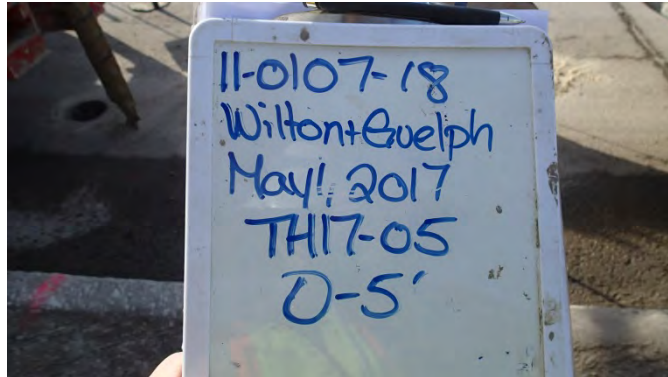 11-0107-18
Wilton+Guelph
May 1, 2017
TH17-05
0-5'